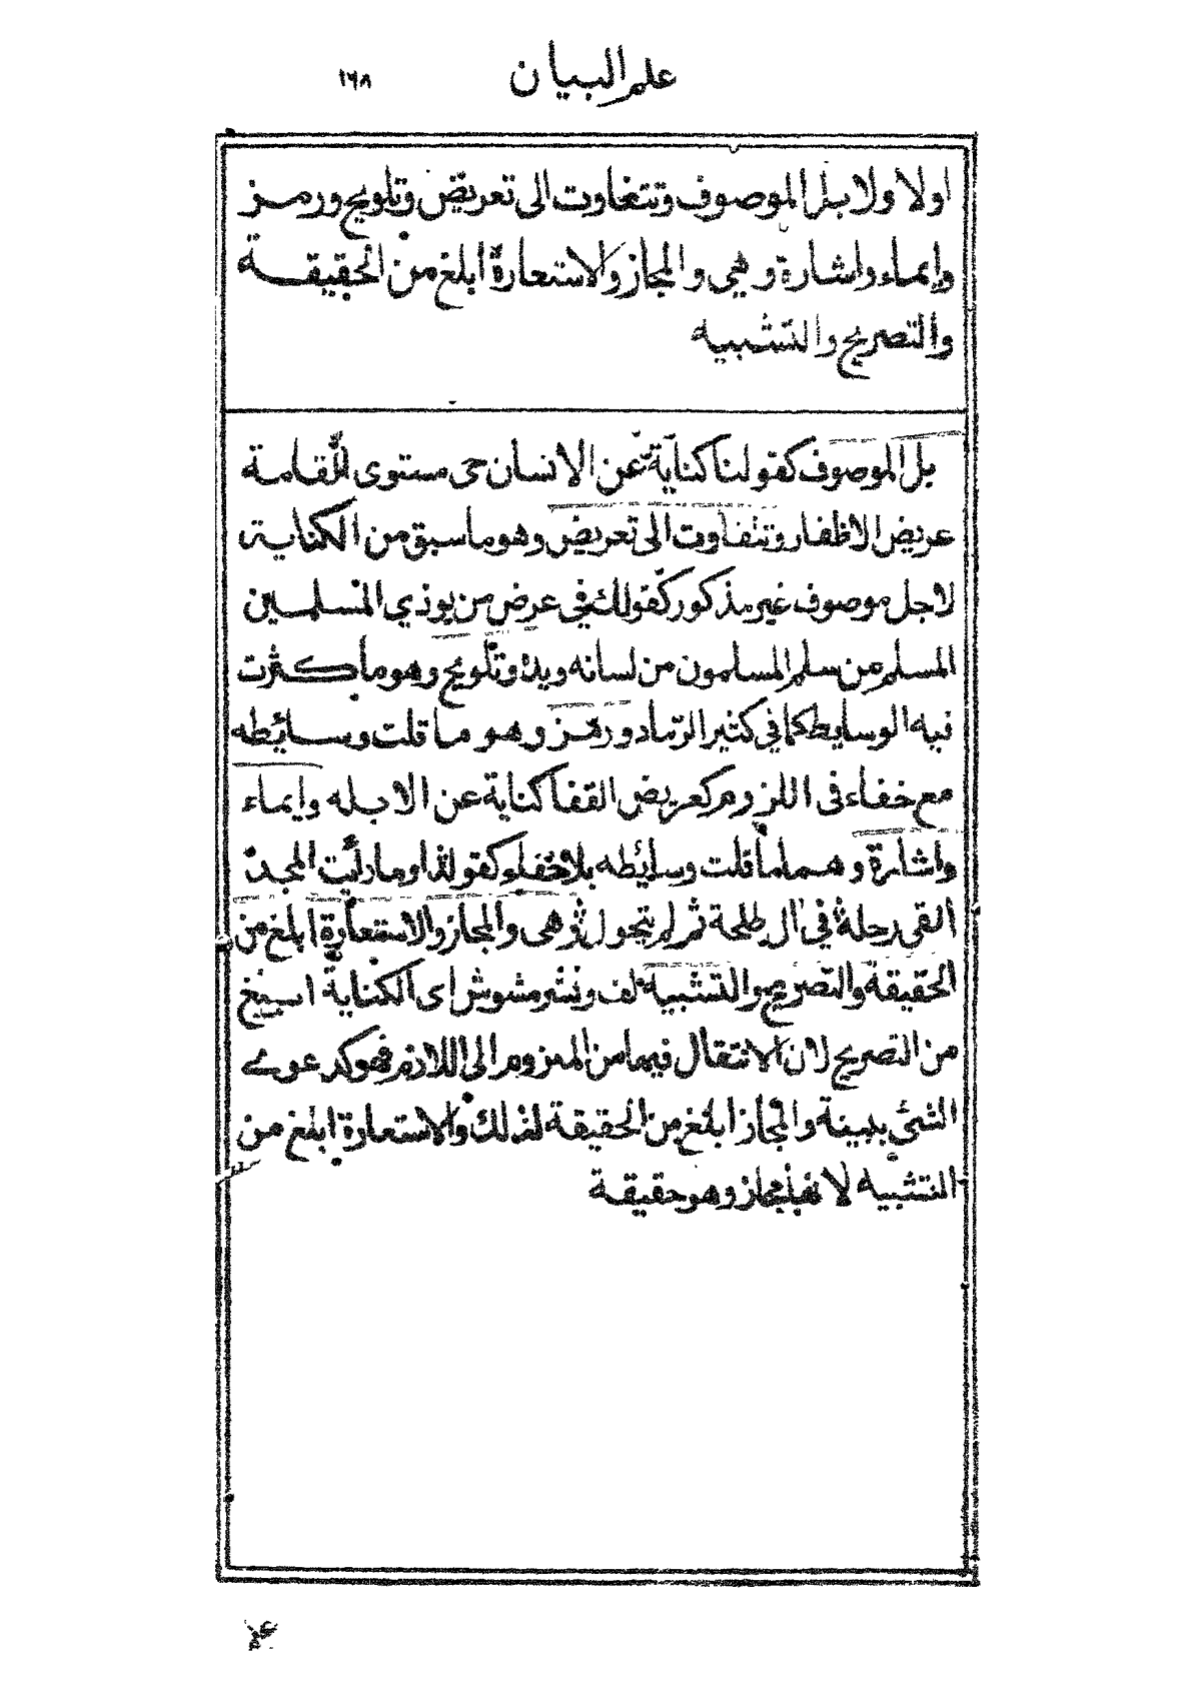 علم البيان ١٦٨
اولا ولا بل الموصوف وتتفاوت الى تعريض وتلويح ورمز
وايماء واشارة وهي والمجاز والاستعارة ابلغ من الحقيقة
والتصريح والتشبيه
بل الموصوف كقولنا كناية عن الانسان حى مستوى القامة
عريض الاظفار وتتفاوت الى تعريض وهو ما سبق من الكناية
لاجل موصوف غير مذكور كقولك في عرض من يوذي المسلمين
المسلم من سلم المسلمون من لسانه ويده وتلويح وهو ما كثرت
فيه الوسايط كما في كثير الرماد ورمز وهو ما قلت وسائطه
مع خفاء فى اللزوم كعريض القفا كناية عن الابله وايماء
واشارة وهما ما قلت وسائطه بلا خفاء كقوله او ما رأيت المجد
القى رحله في ال طلحة ثم لم يتحول وهى والمجاز والاستعارة ابلغ من
الحقيقة والتصريح والتشبيه لف ونشر مشوش اى الكناية ابلغ
من التصريح لان الانتقال فيها من الملزوم الى اللازم فهو كدعوے
الشئ ببينة والمجاز ابلغ من الحقيقة لذلك والاستعارة ابلغ من
التشبيه لانها مجاز وهو حقيقة
علم